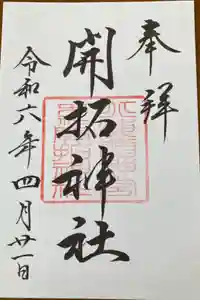 奉拝
開拓神社
令和六年四月廿一日